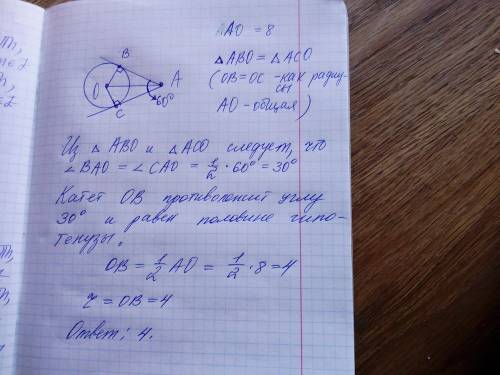 AO = 8
B
△ABO = △ACO
O
A
(OB = OC - как радиу-
сы
60°
C
AO - общая)
Из △ABO и △ACO следует, что
∠BAO = ∠CAO = 1/2 · 60° = 30°
Катет OB противолежит углу
30° и равен половине гипо-
тенузы.
OB = 1/2 AO = 1/2 · 8 = 4
r = OB = 4
Ответ: 4.